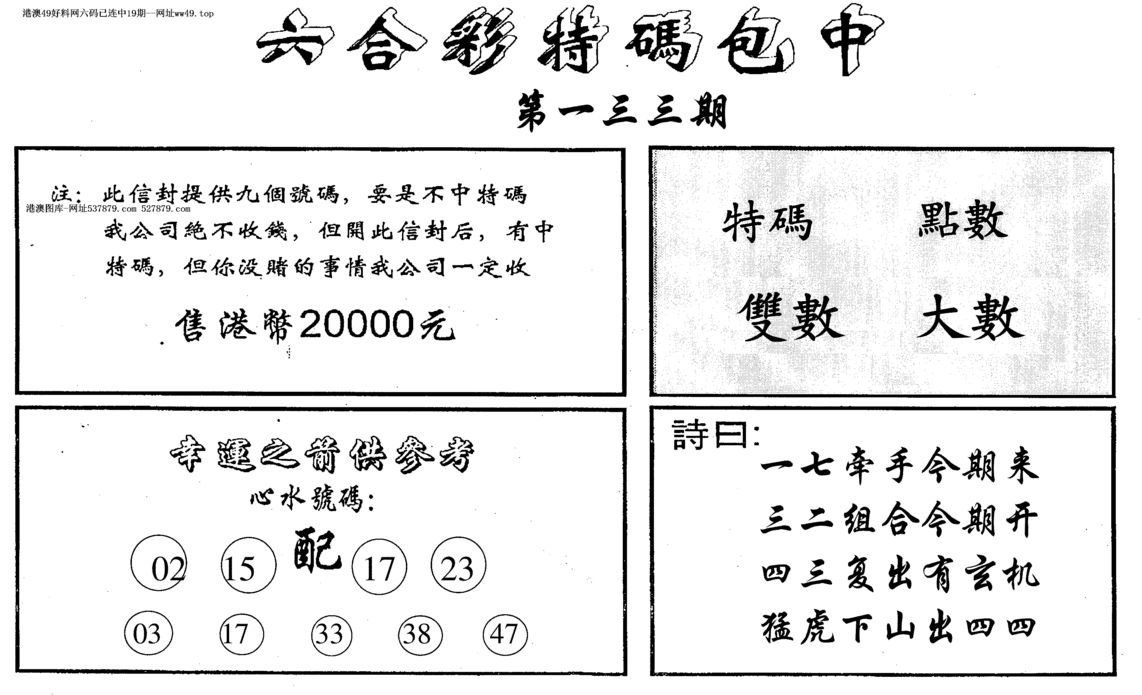 港澳49好料网六码已连中19期—网址ww49.top
六合彩特碼包中
第一三三期
注：此信封提供九個號碼，要是不中特碼
港澳图库-网址537879.com 527879.com
我公司絶不收錢，但開此信封后，有中
特碼，但你没賭的事情我公司一定收
售港幣20000元
特碼 點數
雙數 大數
幸運之箭供參考
心水號碼：
02 15 配 17 23
03 17 33 38 47
詩曰：
一七牽手今期来
三二组合今期开
四三复出有玄机
猛虎下山出四四